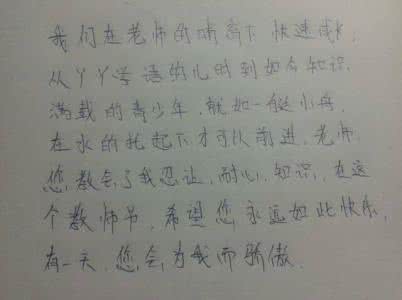 我们在老师的哺育下快速成长,
从丫丫学语的儿时到如今知识
满载的青少年,就如一艘小舟,
在水的托起下才可以前进,老师,
您教会了我忍让,耐心,知识,在这
个教师节,希望您永远如此快乐,
有一天,您会为我而骄傲.